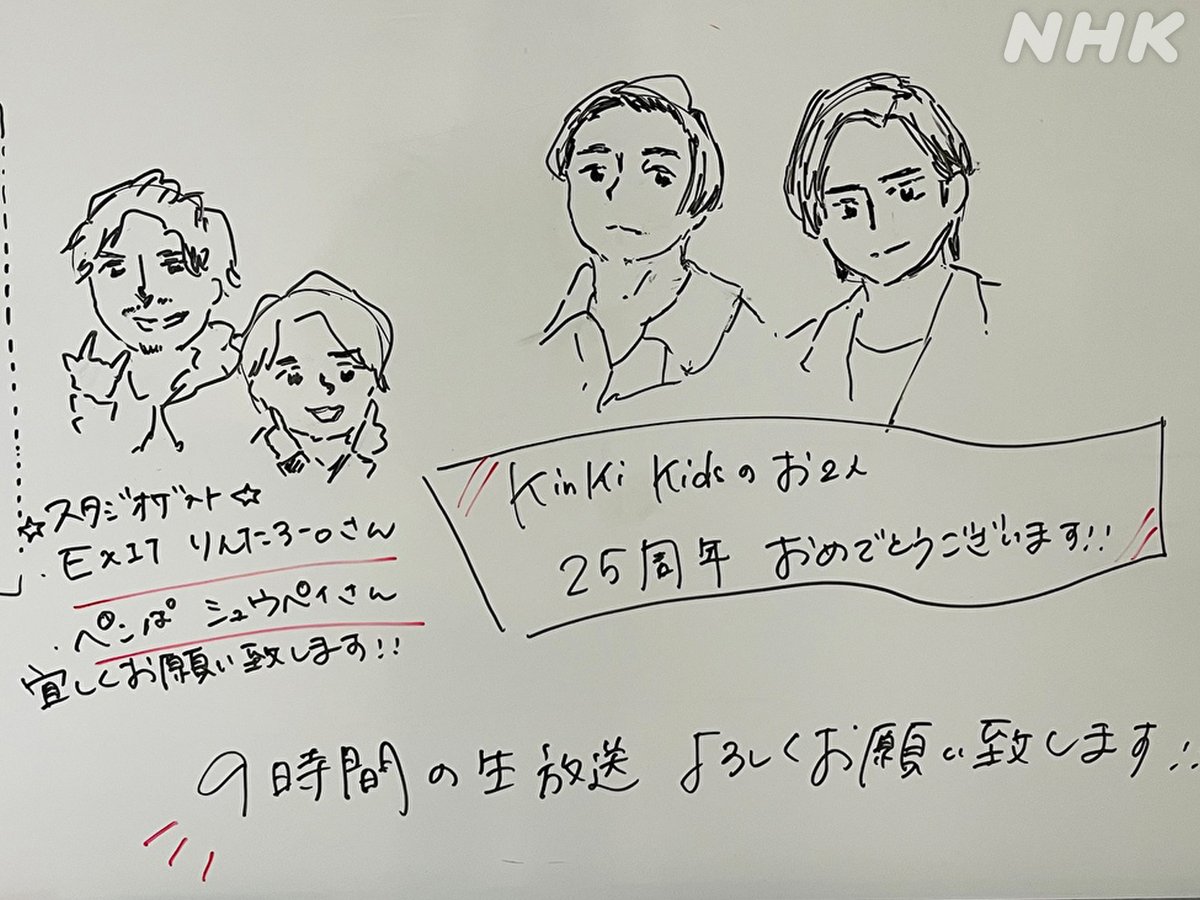 NHK
☆スタジオゲスト☆
・EXIT りんたろーさん
・ぺこぱ シュウペイさん
宜しくお願い致します!!
KinKi Kidsのお2人
25周年 おめでとうございます!!
9時間の生放送 よろしくお願い致します!!